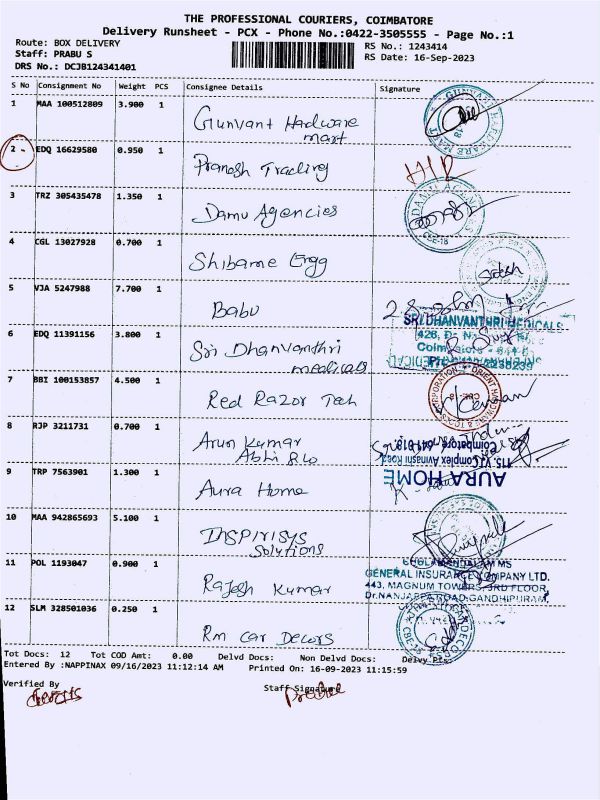 THE PROFESSIONAL COURIERS, COIMBATORE
Delivery Runsheet - PCX - Phone No.:0422-3505555 - Page No.:1
Route: BOX DELIVERY
RS No.: 1243414
Staff: PRABU S
RS Date: 16-Sep-2023
DRS No.: DCJB124341401
S No Consignment No Weight PCS Consignee Details Signature
1 MAA 100512809 3.900 1 Gunvant Hadware mart
2 EDQ 16629580 0.950 1 Pranesh Tracling
3 TRZ 305435478 1.350 1 Damu Agencies
DAMU AGENCIES
CBE-18
4 CGL 13027928 0.700 1 Shibame Engg
5 VJA 5247988 7.700 1 Babu
6 EDQ 11391156 3.800 1 Sri Dhanvanthri medicals
SRI DHANVANTHRI MEDICALS
7 BBI 100153857 4.500 1 Red Razor Tech
8 RJP 3211731 0.700 1 Arun Kumar
9 TRP 7563901 1.300 1 Aura Home
AURA HOME
115, V.J. Complex Avinashi Road
Coimbatore - 641 018.
10 MAA 942865693 5.100 1 INSPIRISYS Solutions
11 POL 1193047 0.900 1 Rajesh Kumar
CHOLAMANDALAM MS
GENERAL INSURANCE COMPANY LTD.
443, MAGNUM TOWERS, 3RD FLOOR
Dr.NANJAPPA ROAD, GANDHIPURAM,
12 SLM 328501036 0.250 1 Rm Car Decors
Tot Docs: 12 Tot COD Amt: 0.00 Delvd Docs: Non Delvd Docs: Delvy Pts:
Entered By :NAPPINAX 09/16/2023 11:12:14 AM Printed On: 16-09-2023 11:15:59
Verified By
Staff Signature